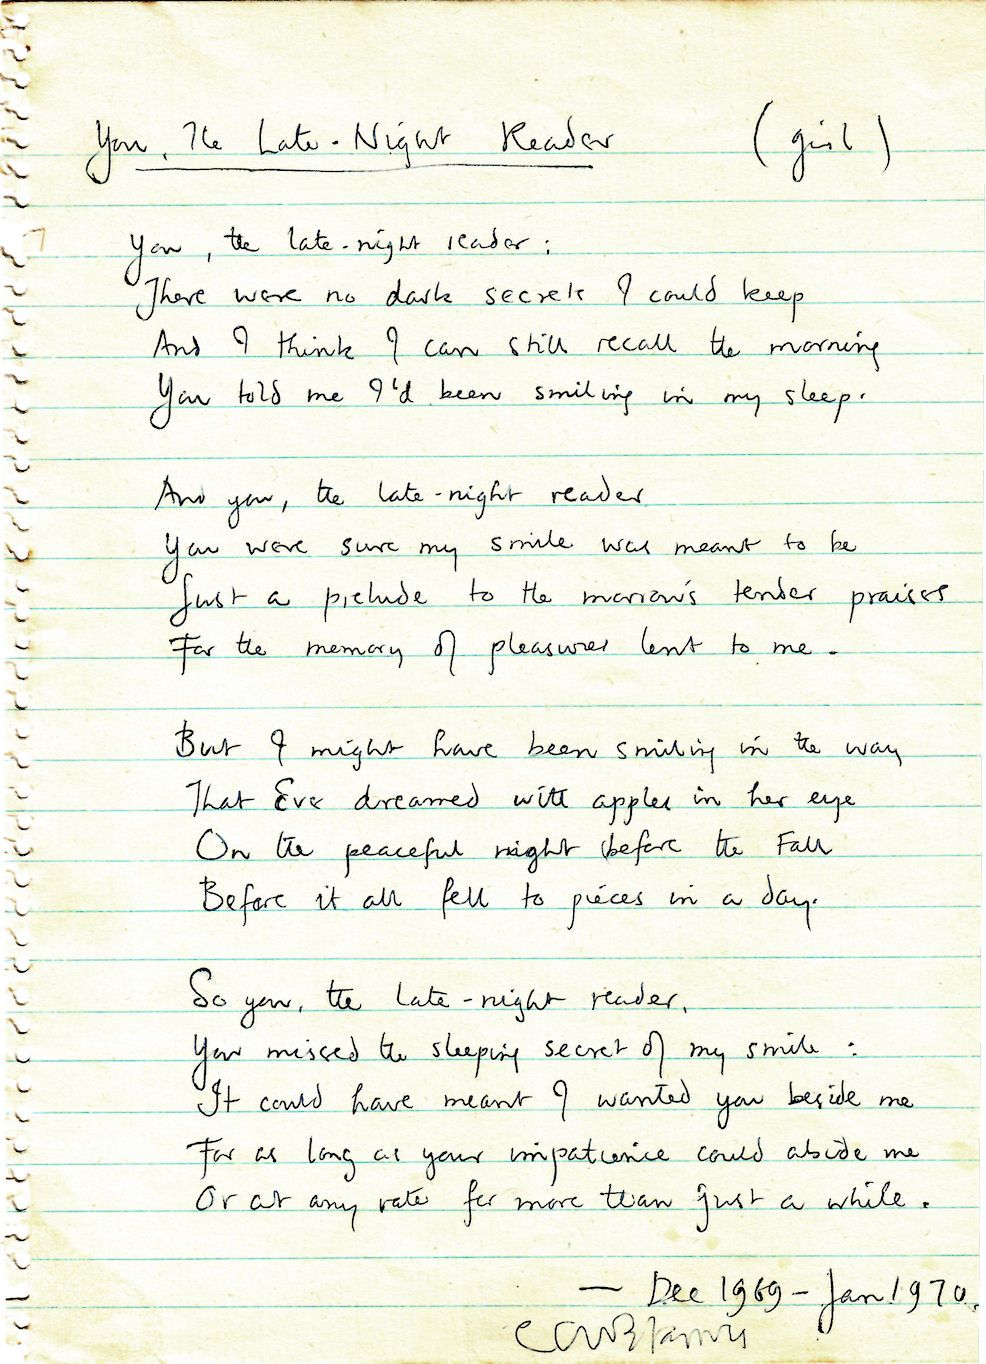 You, the Late-Night Reader (girl)
You, the late-night reader:
There were no dark secrets I could keep
And I think I can still recall the morning
You told me I'd been smiling in my sleep.
And you, the late-night reader
You were sure my smile was meant to be
Just a prelude to the morrow's tender praises
For the memory of pleasures lent to me.
But I might have been smiling in the way
That Eve dreamed with apples in her eye
On the peaceful night before the Fall
Before it all fell to pieces in a day.
So you, the late-night reader,
You missed the sleeping secret of my smile:
It could have meant I wanted you beside me
For as long as your impatience could abide me
Or at any rate for more than just a while.
— Dec 1969 – Jan 1970.